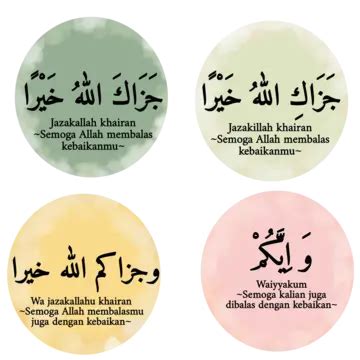 جَزَاكَ اللهُ خَيْرًا
Jazakallah khairan
~Semoga Allah membalas
kebaikanmu~
جَزَاكِ اللهُ خَيْرًا
Jazakillah khairan
~Semoga Allah membalas
kebaikanmu~
وجزاكم الله خيرا
Wa jazakallahu khairan
~Semoga Allah membalasmu
juga dengan kebaikan~
وَ اِيَّكُمْ
Waiyyakum
~Semoga kalian juga
dibalas dengan kebaikan~